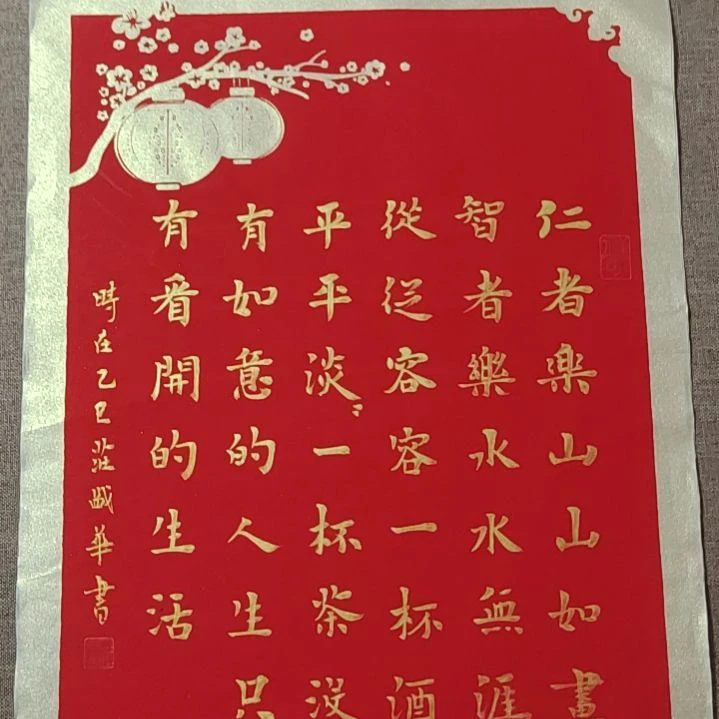 仁者樂山山如畫
智者樂水水無涯
從从容容一杯酒
平平淡〻一杯茶沒
有如意的人生只
有看開的生活
時在乙巳莊晠華書